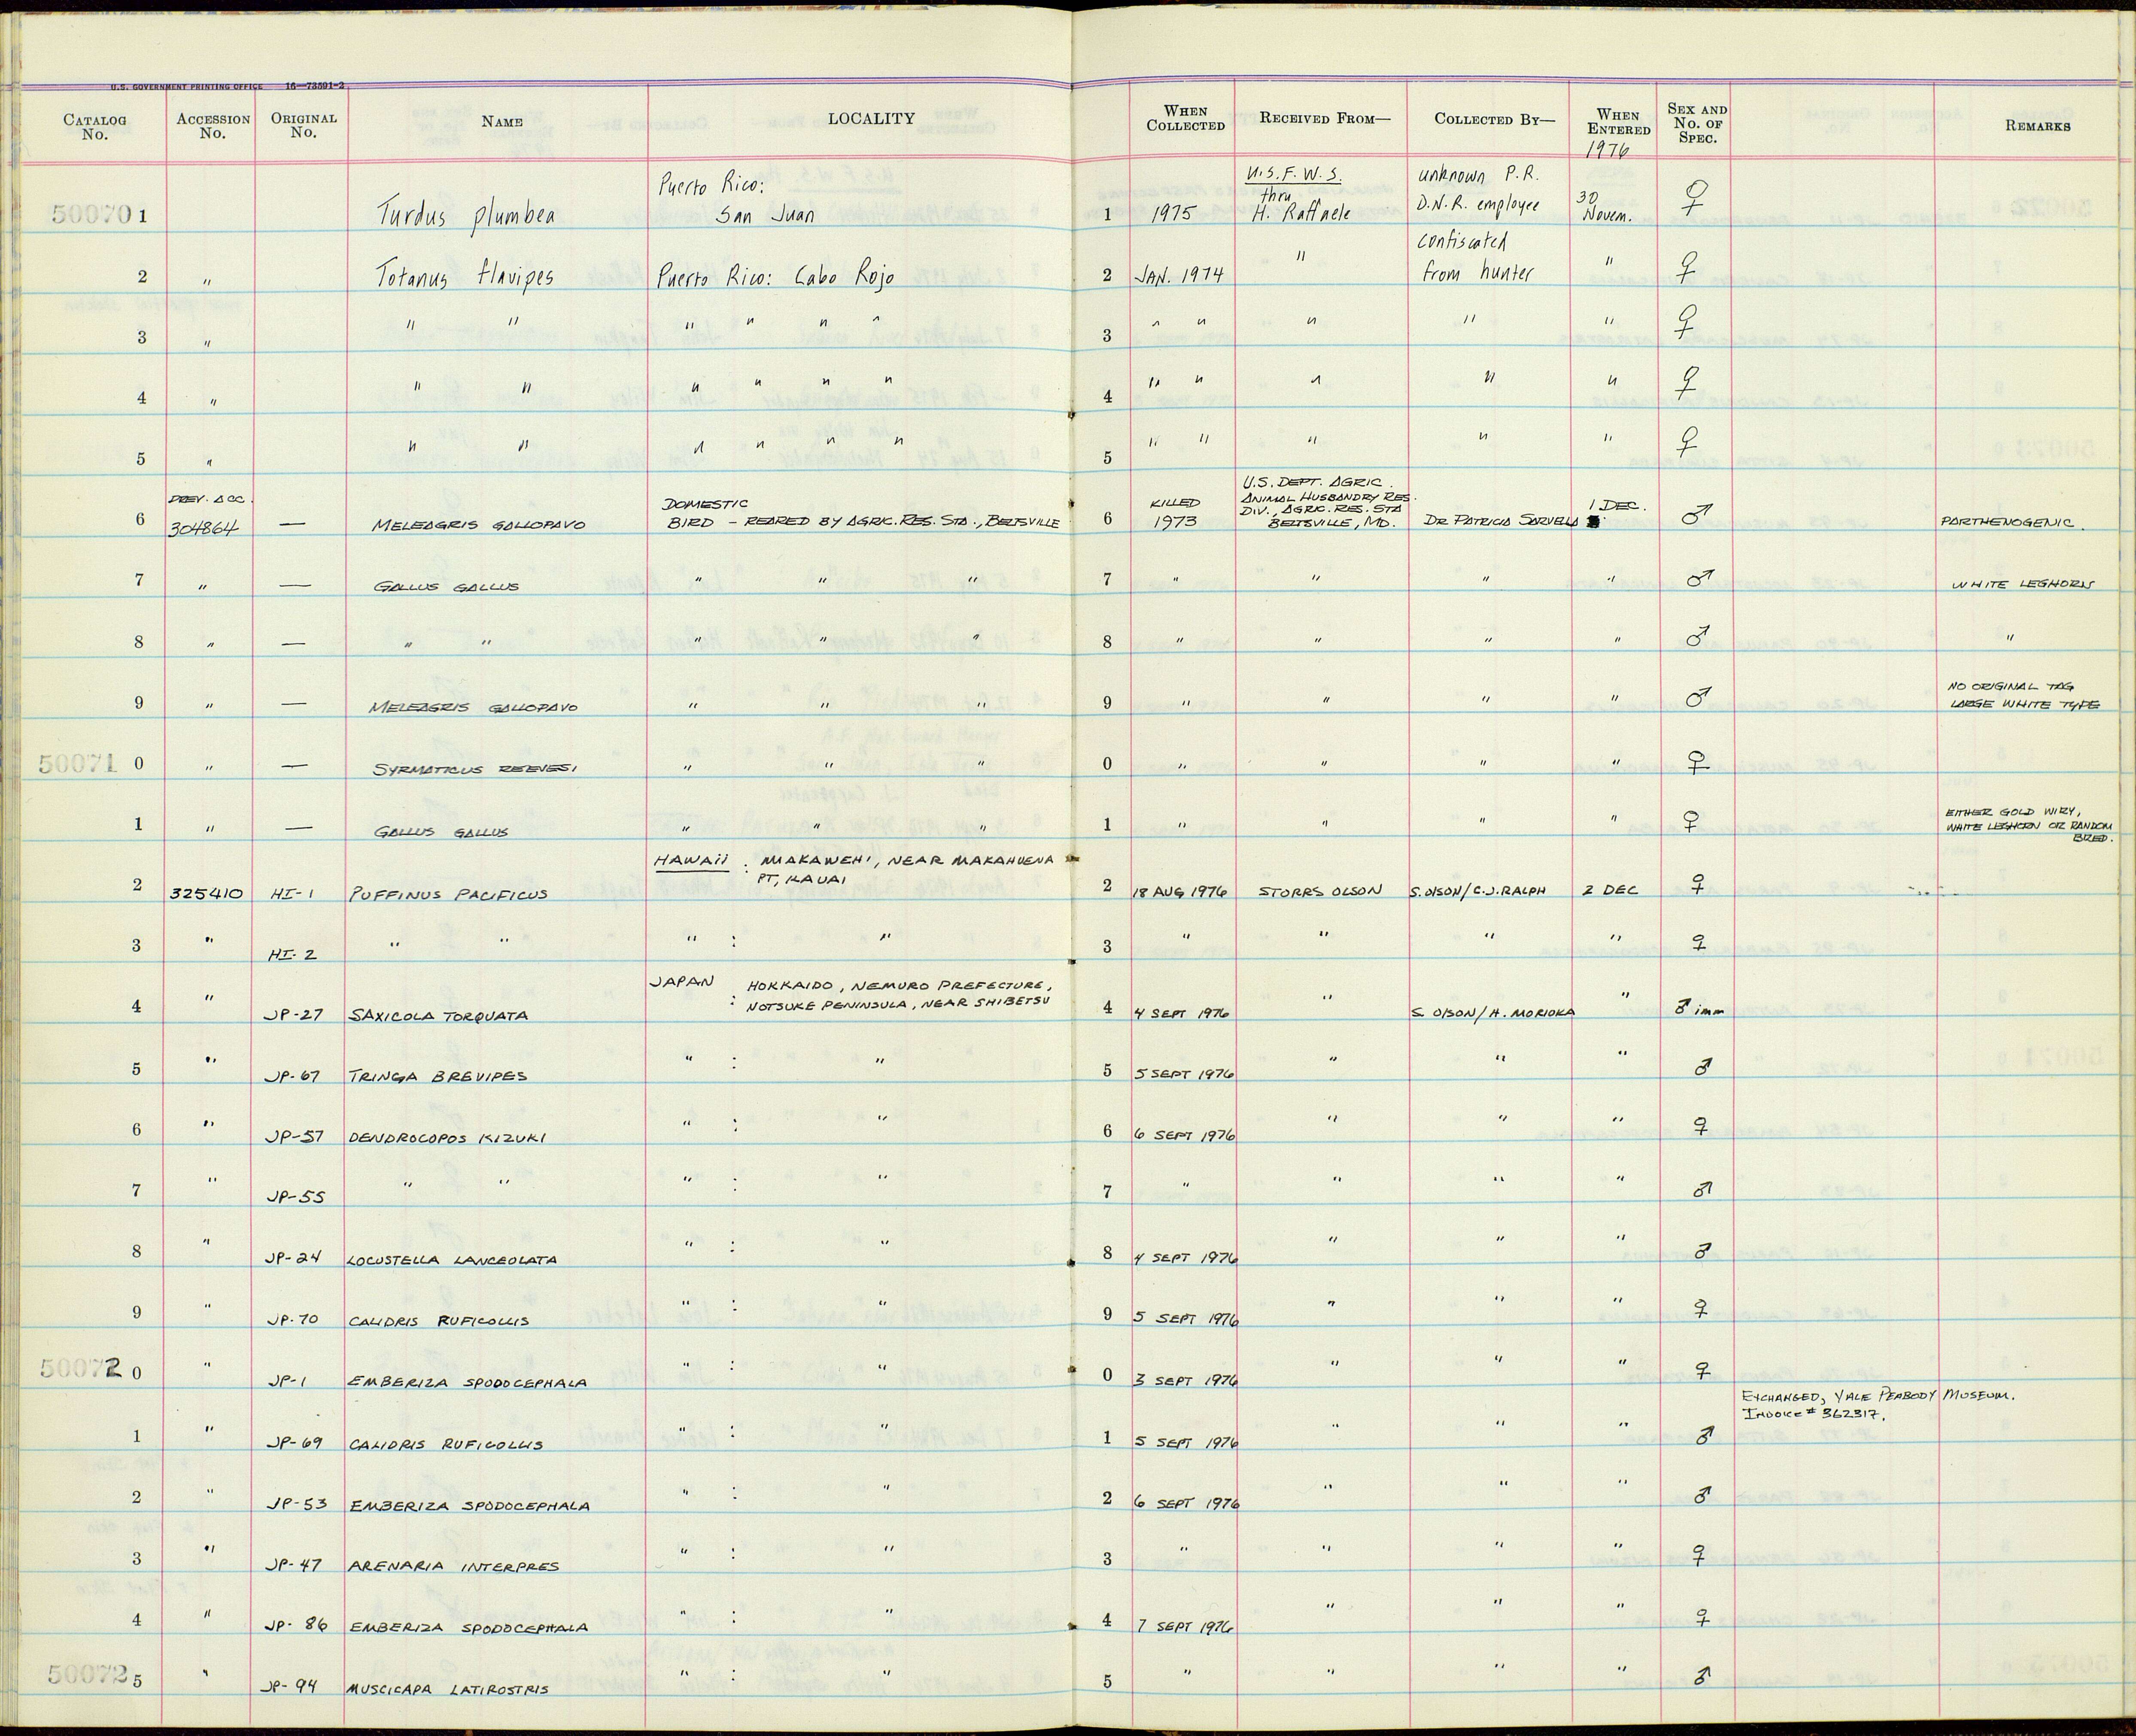 U.S. GOVERNMENT PRINTING OFFICE 16—73591-2
CATALOG No. ACCESSION No. ORIGINAL No. NAME LOCALITY WHEN COLLECTED RECEIVED FROM— COLLECTED BY— WHEN ENTERED 1976 SEX AND No. OF SPEC. REMARKS
50070 1 Turdus plumbea Puerto Rico: San Juan 1 1975 U.S.F.W.S. thru H. Raffaele unknown P.R. D.N.R. employee 30 Novem. ♀
2 " Totanus flavipes Puerto Rico: Cabo Rojo 2 JAN. 1974 " confiscated from hunter " ♀
3 " " " " " " " 3 " " " " " ♀
4 " " " " " " " 4 " " " " " ♀
5 " " " " " " " 5 " " " " " ♀
6 PREV. ACC. 304864 — MELEAGRIS GALLOPAVO DOMESTIC BIRD – REARED BY AGRIC. RES. STA., BELTSVILLE 6 KILLED 1973 U.S. DEPT. AGRIC. ANIMAL HUSBANDRY RES. DIV., AGRIC. RES. STA BELTSVILLE, MD. DR PATRICIA SARVELLA 1 DEC. ♂ PARTHENOGENIC.
7 " — GALLUS GALLUS " " " 7 " " " " ♂ WHITE LEGHORN
8 " — " " " " " 8 " " " " ♂ "
9 " — MELEAGRIS GALLOPAVO " " " 9 " " " " ♂ NO ORIGINAL TAG LARGE WHITE TYPE
50071 0 " — SYRMATICUS REEVESI " " " 0 " " " " ♀
1 " — GALLUS GALLUS " " " 1 " " " " ♀ EITHER GOLD WIRY, WHITE LEGHORN OR RANDOM BRED.
2 325410 HI-1 PUFFINUS PACIFICUS HAWAII : MAKAWEHI, NEAR MAKAHUENA PT, KAUAI 2 18 AUG 1976 STORRS OLSON S. OLSON/C.J. RALPH 2 DEC ♀
3 " HI-2 " " " : " 3 " " " " ♀
4 " JP-27 SAXICOLA TORQUATA JAPAN : HOKKAIDO, NEMURO PREFECTURE, NOTSUKE PENINSULA, NEAR SHIBETSU 4 4 SEPT 1976 " S. OLSON/H. MORIOKA " ♂ imm
5 " JP-67 TRINGA BREVIPES " : " 5 5 SEPT 1976 " " " ♂
6 " JP-57 DENDROCOPOS KIZUKI " : " 6 6 SEPT 1976 " " " ♀
7 " JP-55 " " " : " 7 " " " " ♂
8 " JP-24 LOCUSTELLA LANCEOLATA " : " 8 4 SEPT 1976 " " " ♂
9 " JP-70 CALIDRIS RUFICOLLIS " : " 9 5 SEPT 1976 " " " ♀
50072 0 " JP-1 EMBERIZA SPODOCEPHALA " : " 0 3 SEPT 1976 " " " ♀
1 " JP-69 CALIDRIS RUFICOLLIS " : " 1 5 SEPT 1976 " " " ♂ EXCHANGED, YALE PEABODY MUSEUM. INVOICE # 362317.
2 " JP-53 EMBERIZA SPODOCEPHALA " : " 2 6 SEPT 1976 " " " ♂
3 " JP-47 ARENARIA INTERPRES " : " 3 " " " " ♀
4 " JP-86 EMBERIZA SPODOCEPHALA " : " 4 7 SEPT 1976 " " " ♀
50072 5 " JP-94 MUSCICAPA LATIROSTRIS " : " 5 " " " " ♂